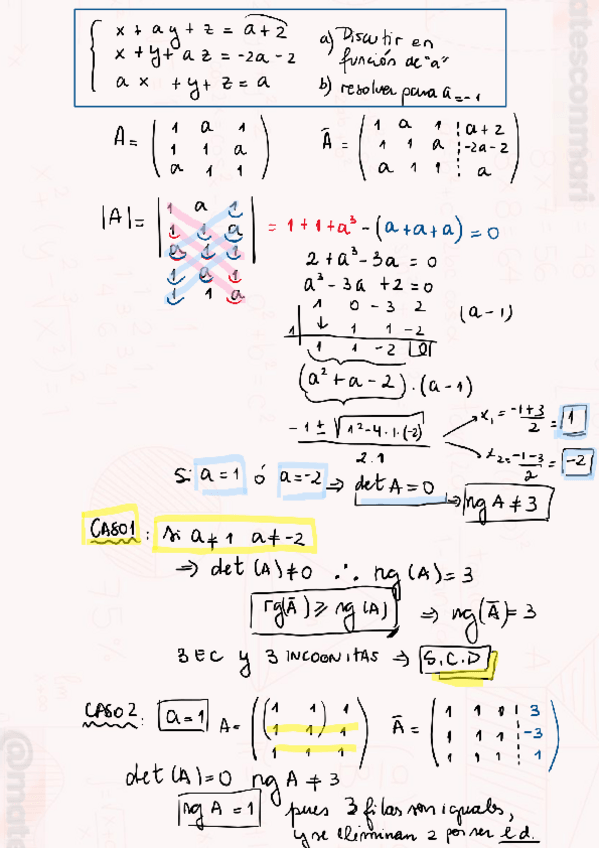 x + ay + z = a+2
x + y + az = -2a-2
ax + y + z = a
a) Discutir en
función de "a"
b) resolver para a=-1
A = ( 1 a 1
1 1 a
a 1 1 )
Ā = ( 1 a 1 | a+2
1 1 a | -2a-2
a 1 1 | a )
|A| = | 1 a 1
1 1 a
a 1 1
1 a 1
1 1 a
= 1+1+a³-(a+a+a) = 0
2+a³-3a = 0
a³-3a+2=0
1 0 -3 2
1 ↓ 1 1 -2
1 1 -2 |0|
(a-1)
(a²+a-2)·(a-1)
-1 ± √1²-4·1·(-2)
2·1
x₁ = -1+3/2 = 1
x₂ = -1-3/2 = -2
Si a=1 ó a=-2 ⇒ det A=0 → rg A ≠ 3
CASO1: si a≠1 a≠-2
⇒ det(A)≠0 ∴ rg(A)=3
rg(Ā) ⩾ rg(A) ⇒ rg(Ā)=3
3 EC y 3 INCOGNITAS ⇒ S.C.D
CASO2: a=1 A = ( 1 1 1
1 1 1
1 1 1 )
Ā = ( 1 1 1 | 3
1 1 1 | -3
1 1 1 | 1 )
det(A)=0 rg A ≠ 3
rg A = 1 pues 3 filas son iguales,
y se eliminan 2 por ser l.d.
matesconmari
@rmates